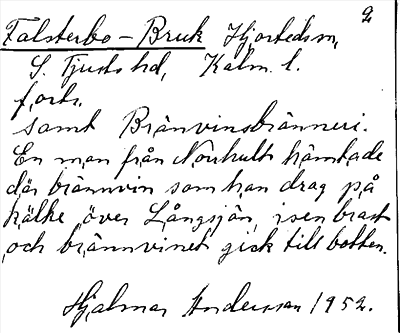 2
Falsterbo - Bruk Hjorteds sn,
S. Tjusts hd, Kalm. l.
forts.
samt Bränvinsbränneri.
En man från Norrhult hämtade
där brännvin som han drog på
kälke över Långsjön, isen brast
och brännvinet gick till botten.
Hjalmar Andersson 1952.